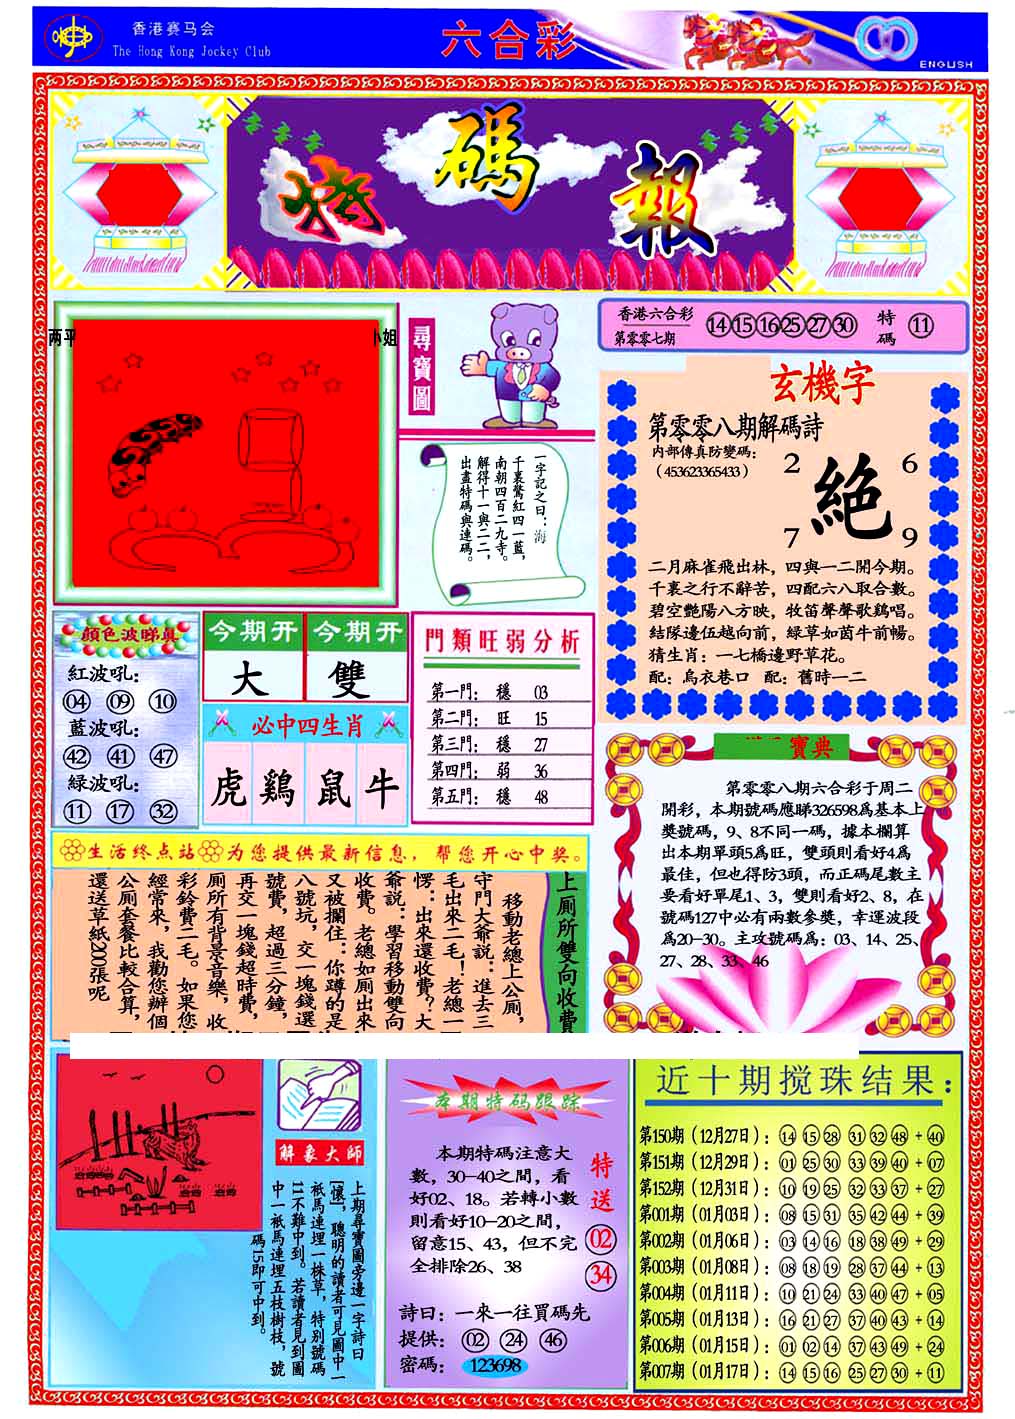 香港赛马会
The Hong Kong Jockey Club
六合彩
ENGLISH
特碼報
两平
小姐
尋寶圖
香港六合彩
第零零七期
14 15 16 25 27 30
特碼
11
一字記之曰：海
千裏鶯紅四一藍，
南朝四百二九寺。
解得十一與二二，
出盡特碼與連碼。
玄機字
第零零八期解碼詩
内部傳真防變碼：
（453623365433）
2 6
絕
7 9
二月麻雀飛出林，四與一二開今期。
千裏之行不辭苦，四配六八取合數。
碧空艷陽八方映，牧笛聲聲歌鷄唱。
結隊邊伍越向前，緑草如茵牛前暢。
猜生肖：一七橋邊野草花。
配：烏衣巷口 配：舊時一二
顔色波睇真
紅波吼：
04 09 10
藍波吼：
42 41 47
緑波吼：
11 17 32
今期开 今期开
大 雙
必中四生肖
虎 鷄 鼠 牛
門類旺弱分析
第一門： 穩 03
第二門： 旺 15
第三門： 穩 27
第四門： 弱 36
第五門： 穩 48
寶典
第零零八期六合彩于周二
開彩，本期號碼應睇326598爲基本上
獎號碼，9、8不同一碼，據本欄算
出本期單頭5爲旺，雙頭則看好4爲
最佳，但也得防3頭，而正碼尾數主
要看好單尾1、3，雙則看好2、8，在
號碼127中必有兩數參獎，幸運波段
爲20-30。主攻號碼爲：03、14、25、
27、28、33、46
生活终点站 为您提供最新信息，帮您开心中奖。
上厠所雙向收費
移動老總上公厠，
守門大爺説：進去三
毛出來二毛！老總一
愣：出來還收費？大
爺説：學習移動雙向
收費。老總如厠出來
又被攔住：你蹲的是
八號坑，交一塊錢選
號費，超過三分鐘，
再交一塊錢超時費，
厠所有背景音樂，收
彩鈴費二毛。如果您
經常來，我勸您辦個
公厠套餐比較合算，
還送草紙2000張呢
解象大師
上期尋寶圖旁邊一字詩曰
[懷]，聰明的讀者可見圖中一
祇馬連埋一株草，特别號碼
11不難中到。若讀者見到圖
中一祇馬連埋五枝樹枝，號
碼15即可中到。
本期特码跟踪
本期特码注意大
數，30-40之間，看
好02、18。若轉小數
則看好10-20之間，
留意15、43，但不完
全排除26、38
特送
02
34
詩曰： 一來一往買碼先
提供： 02 24 46
密碼： 123698
近十期搅珠结果：
第150期（12月27日）：14 15 28 31 32 48 + 40
第151期（12月29日）：01 25 30 33 39 40 + 07
第152期（12月31日）：10 19 25 32 33 37 + 27
第001期（01月03日）：08 15 31 35 42 44 + 39
第002期（01月06日）：03 14 16 18 38 49 + 29
第003期（01月08日）：08 18 19 28 37 44 + 13
第004期（01月11日）：10 21 24 33 40 47 + 05
第005期（01月13日）：16 21 27 37 40 43 + 14
第006期（01月15日）：01 02 14 37 43 49 + 24
第007期（01月17日）：14 15 16 25 27 30 + 11